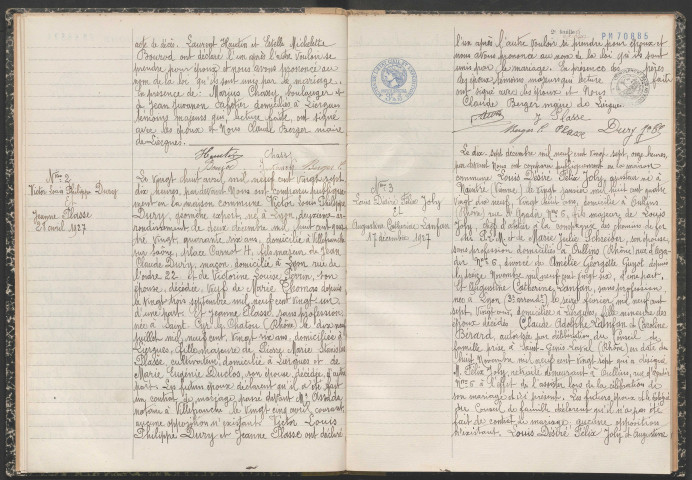 acte de décès. Laurent Hautin et Estelle Michelette
Bourod ont déclaré l'un après l'autre vouloir se
prendre pour époux et nous avons prononcé au
nom de la loi qu'ils sont unis par le mariage.
En présence de: Marius Chassy, boulanger et
de Jean domiciliés à Liergues
témoins majeurs qui, lecture faite, ont signé
avec les époux et Nous Claude Berger maire
de Liergues.
Hautin
N° 2
Victor Louis Philippe Durry
et
Jeanne Plasse
28 avril 1927
Le vingt huit avril mil neuf cent vingt sept
dix heures, par devant Nous ont comparu publique-
ment en la maison commune Victor Louis Philippe
Durry, géomètre expert né à Lyon, deuxième ar-
rondissement le deux décembre mil huit cent qua-
tre vingt, quarante six ans, domicilié à Villefranche
sur Saône, place Carnot 4, fils majeur de Jean
Claude Durry, maçon, domicilié à Lyon rue de
l'ordre 22 et de Victorine Louise Perrin, son
épouse, décédée, Veuf de Marie Thomas depuis
le vingt trois septembre mil neuf cent vingt un
d'une part. Et Jeanne Plasse, sans profession
née à Saint Cyr le Chatou (Rhône) le dix neuf
juillet mil neuf cent, vingt six ans, domiciliée à
Liergues, fille majeure de Pierre Marie Stanislas
Plasse, cultivateur, domicilié à Liergues et de
Marie Eugénie Duclos, son épouse, décédée, d'autre
part. Les futurs époux déclarent qu'il a été fait
un contrat de mariage passé devant Me
notaire à Villefranche le vingt cinq avril courant,
aucune opposition n'existant. Victor Louis
Philippe Durry et Jeanne Plasse ont déclaré
2e feuillet
PM 70885
l'un après l'autre vouloir se prendre pour époux et
nous avons prononcé au nom de la loi qu'ils sont
unis par le mariage. En présence des pères
des époux témoins majeurs qui lecture faite
ont signé avec les époux et Nous
Claude Berger maire de Liergues.
J Plasse
Berger C. Plasse Durry
N° 3
Louis Désiré Félix Joly
et
Augustine Catherine Lanfan
17 décembre 1927
Le dix sept décembre mil neuf cent vingt sept, onze heures,
par devant Nous ont comparu publiquement en la maison
commune Louis Désiré Félix Joly, né à
Naintré (Vienne) le vingt janvier mil huit cent quatre
vingt dix neuf, vingt huit ans, domicilié à Oullins
(Rhône) rue N° 5, fils majeur de Louis
Joly, chef d'atelier à la compagnie des chemins de fer
P.L.M. et de Marie Julie Schreiber, son épouse,
sans profession, domiciliés à Oullins (Rhône) rue
N° 5, divorcé de Amélie Georgette Guyot depuis
le seize Novembre mil neuf cent vingt six, d'une part.
Et Augustine Catherine Lanfan, sans profession
née à Lyon (3e arrondt) le seize février mil neuf cent
sept, vingt ans, domiciliée à Liergues, fille mineure des
époux décédés Claude Adolphe Lanfan et Caroline
Bérard, autorisée par délibération du conseil de
famille prise à Saint-Genis-Laval (Rhône) en date du
neuf Novembre mil neuf cent vingt sept qui a désigné
M. Félix Joly, retraité demeurant à Oullins, rue
N° 5 à l'effet de l'assister lors de la célébration de
son mariage et ici présent. Les futurs époux et le délégué
du Conseil de famille déclarent qu'il n'a pas été
fait de contrat de mariage, aucune opposition
n'existant. Louis Désiré Félix Joly et Augustine